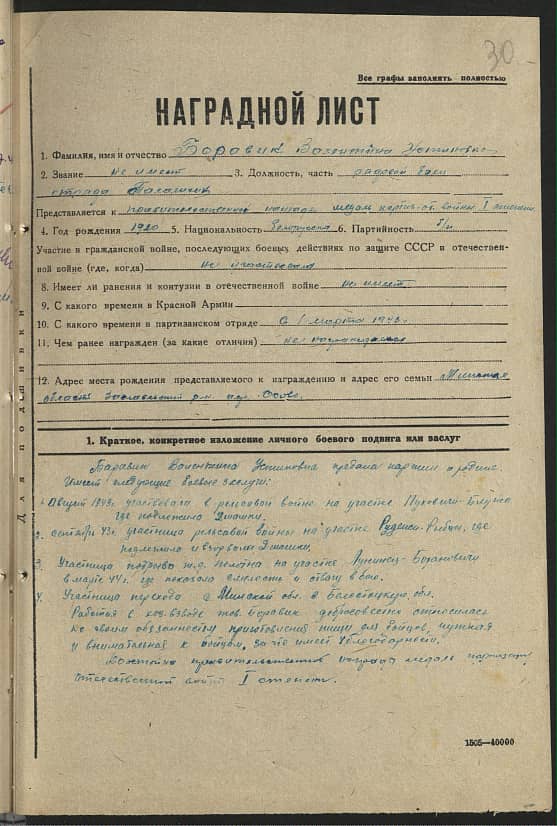 30
Все графы заполнять полностью
НАГРАДНОЙ ЛИСТ
1. Фамилия, имя и отчество Боровик Валентина Устиновна
2. Звание не имеет 3. Должность, часть рядовой
отряда
Представляется к правительственной награде медаль войны I степени
4. Год рождения 1920 5. Национальность белоруска 6. Партийность б/п
Участие в гражданской войне, последующих боевых действиях по защите СССР и отечествен-
ной войне (где, когда) не участвовала
8. Имеет ли ранения и контузии в отечественной войне не имеет
9. С какого времени в Красной Армии
10. С какого времени в партизанском отряде С 1 марта 1943
11. Чем ранее награжден (за какие отличия) не награждалась
12. Адрес места рождения представляемого к награждению и адрес его семьи Минская
область Заславский р-н
1. Краткое, конкретное изложение личного боевого подвига или заслуг
Боравик Валентина Устиновна предана партии и родине.
Имеет следующие боевые заслуги:
1. Август 1943г. участвовала в рельсовой войне на участке Пуховичи
где подложила
2. сентябрь 43г. участница рельсовой войны на участке Руденск где
подложила и взорвала
3. Участница подрыва ж.д. полотна на участке Лунинец-Баранович
в марте 44г. где показала смелость и отвагу в бою.
4. Участница перехода с Минской обл. в Белостокскую обл.
Работая в хоз. взводе тов. Боравик добросовестно относилась
ко своим обязанностям приготовления пищи для бойцов, нужная
и внимательная к бойцам, за что имеет благодарности.
Достойна правительственной награды медаль партизану
отечественной войны I степени.
1505—40000
Для подшивки